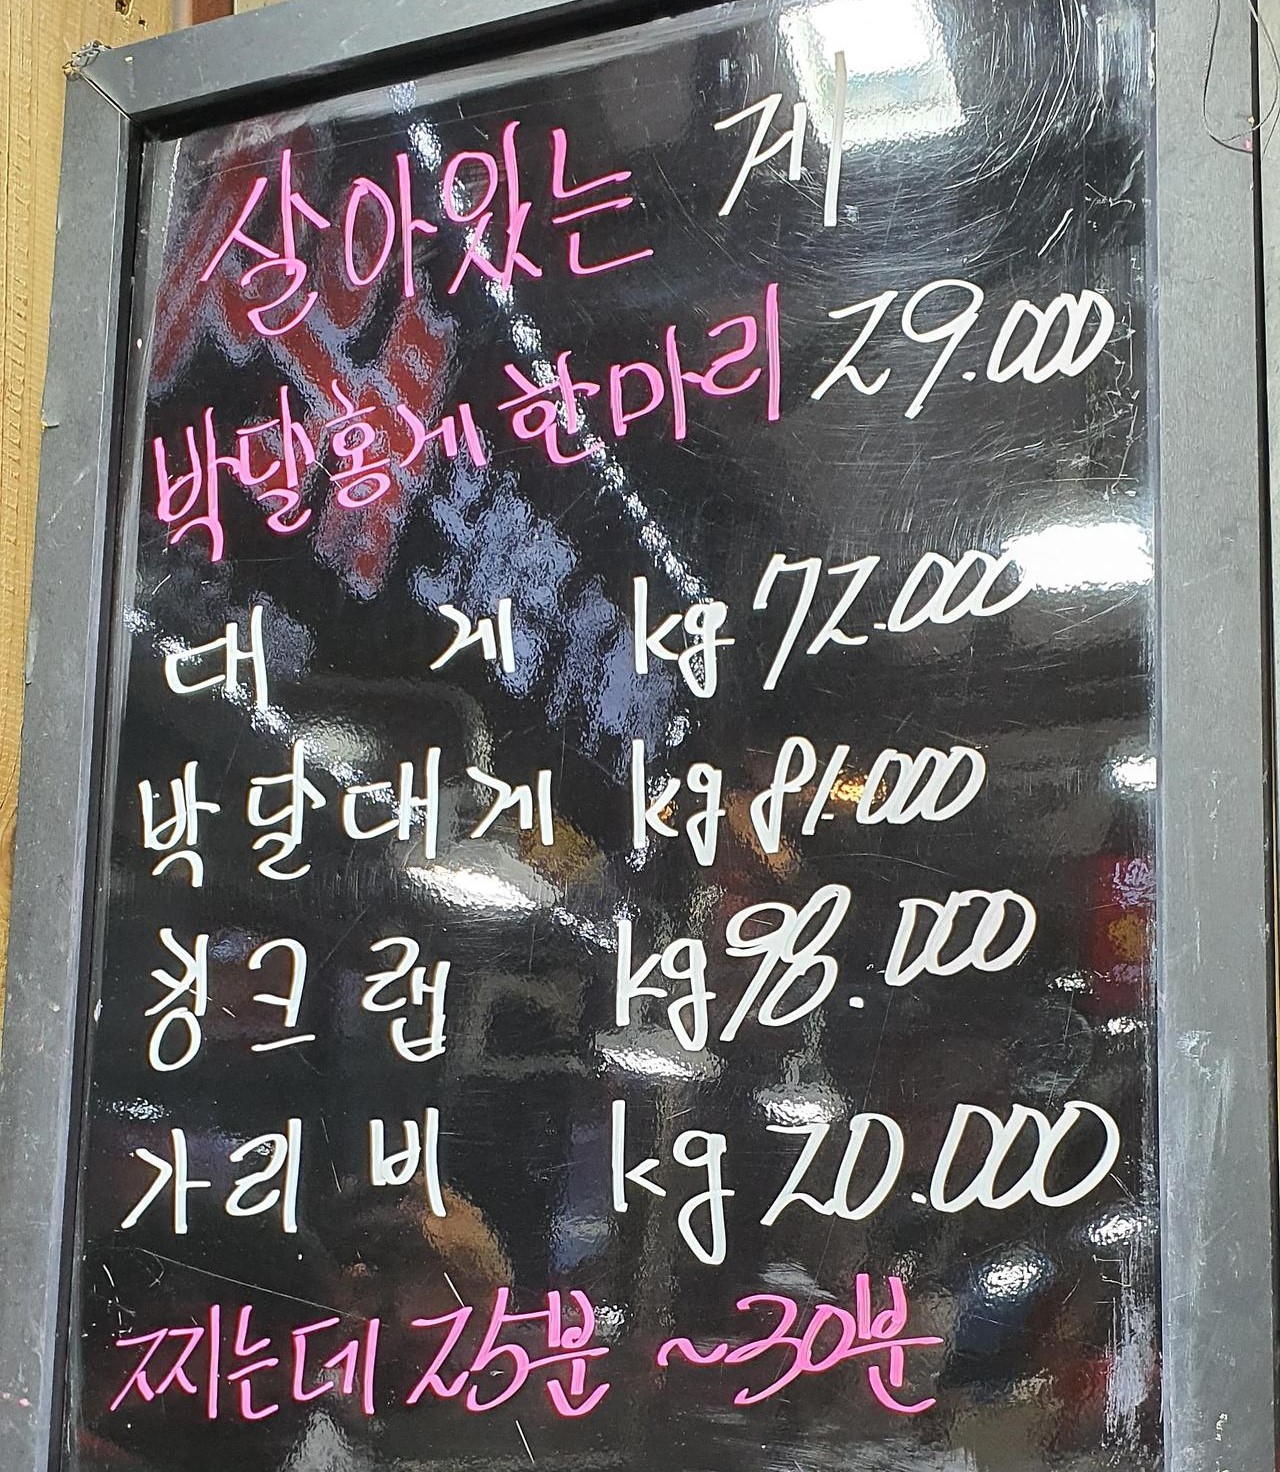 살아있는 게
박달홍게 한마리 29.000
대 게 kg 72.000
박달대게 kg 81.000
킹크랩 kg 98.000
가리비 kg 20.000
찌는데 25분 ~30분